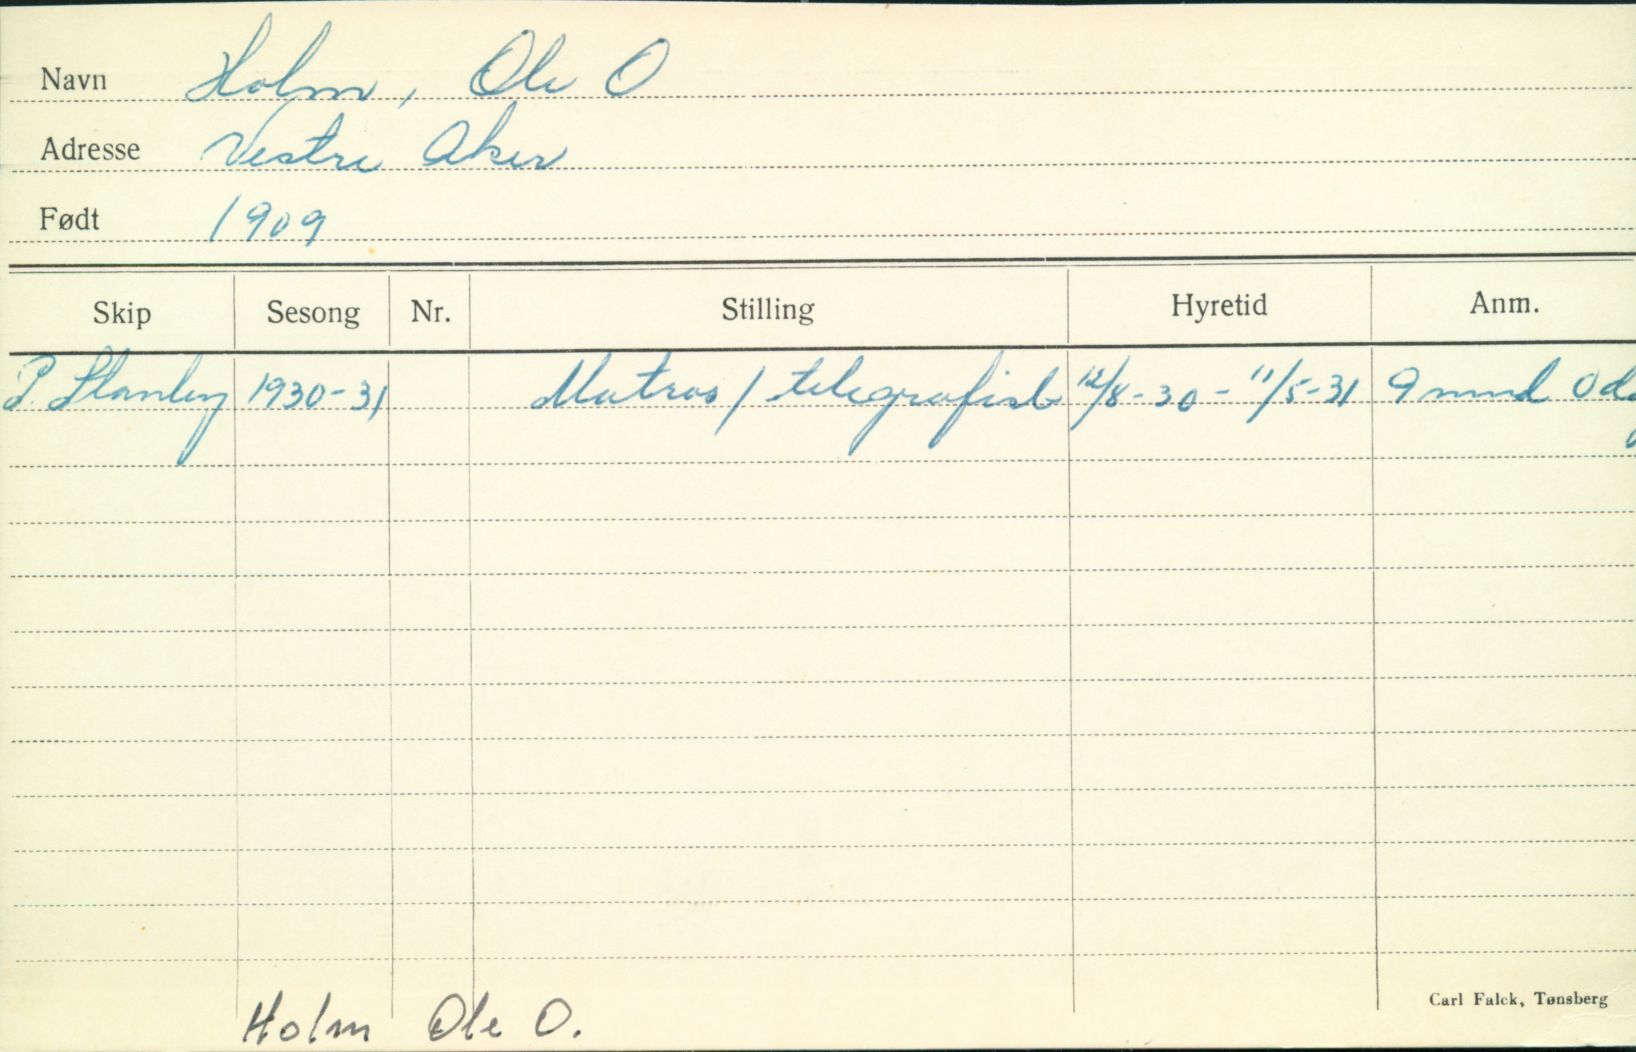 Navn Holm, Ole O
Adresse Vestre Aker
Født 1909
Skip Sesong Nr. Stilling Hyretid Anm.
P. Stanley 1930-31 Matros / telegrafist 12/8-30 - 11/5-31 9 mnd 0 dg
Carl Falck, Tønsberg
Holm Ole O.